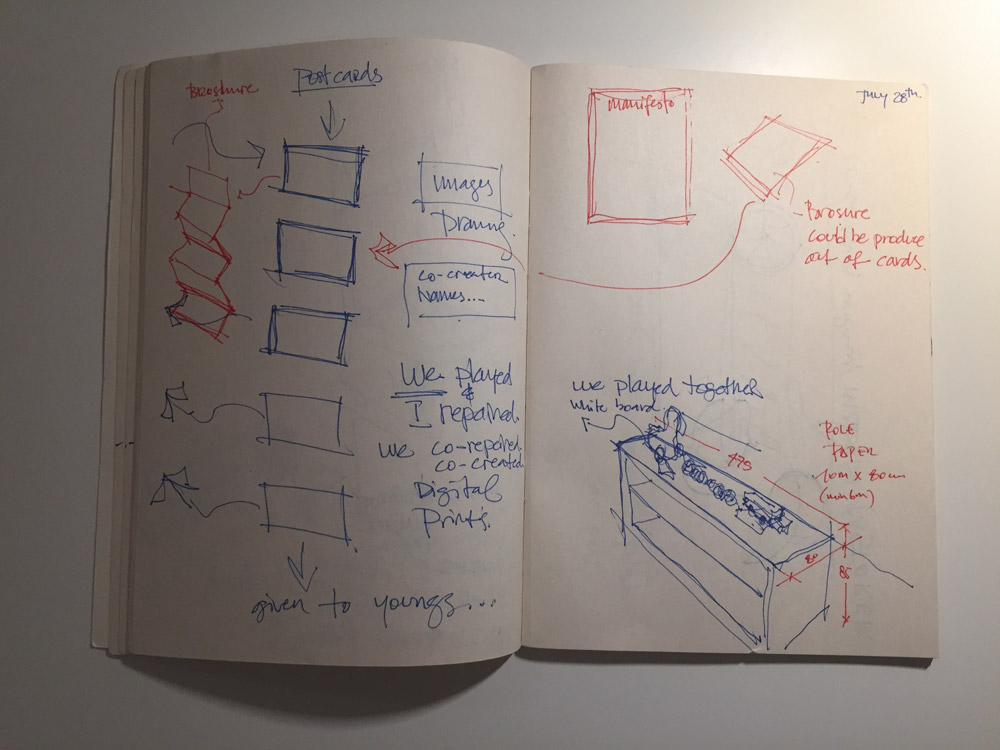 Broshure
Postcards
Images
Drawing.
co-creator
Names....
We played
&
I repaired.
We co-repaired
co-created
Digital
Prints.
given to youngs...
July 28th
manifesto
- Brosure
could be produce
out of cards.
we played together
white board
475
ROLE
PAPER
10m x 80cm
(min 6m)
80
85